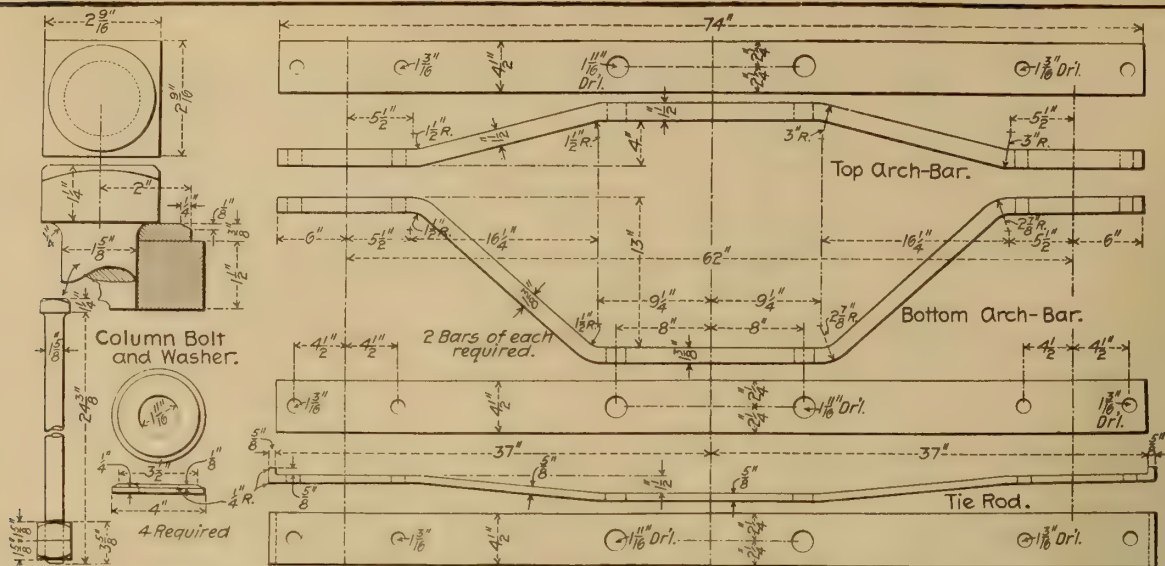 2 9/16"
2 9/16"
1 1/4"
2"
1/4"
1/8"
3/8"
1/4"
1 5/8"
1 1/2"
1 1/4"
5/8"
24 3/8"
Column Bolt
and Washer.
1 11/16"
1/4"
3 1/2"
1/8"
1/4" R.
4"
4 Required
1 5/8"
1 5/8"
3 5/8"
74"
4 1/2"
1 3/16"
1 11/16"
Dr'l.
2 1/4"
2 1/4"
1 3/16" Dr'l.
5 1/2"
1 1/2" R.
1 1/2"
1 1/2" R.
4"
1 1/2"
3" R.
5 1/2"
3" R.
Top Arch-Bar.
6"
5 1/2"
1 1/2" R.
16 1/4"
13"
16 1/4"
2 7/8" R.
5 1/2"
6"
62"
9 1/4"
9 1/4"
1 1/2" R.
2 7/8" R.
Bottom Arch-Bar.
2 Bars of each
required.
8"
8"
1 3/8"
4 1/2"
4 1/2"
4 1/2
4 1/2"
1 3/16"
4 1/2"
2 1/4"
2 1/4"
1 11/16" Dr'l.
1 3/16"
Dr'l.
5/8"
37"
37"
5/8"
5/8"
5/8"
1 1/2"
5/8"
Tie Rod.
4 1/2"
1 3/16"
1 11/16" Dr'l.
2 1/4"
2 1/4"
1 3/16" Dr'l.